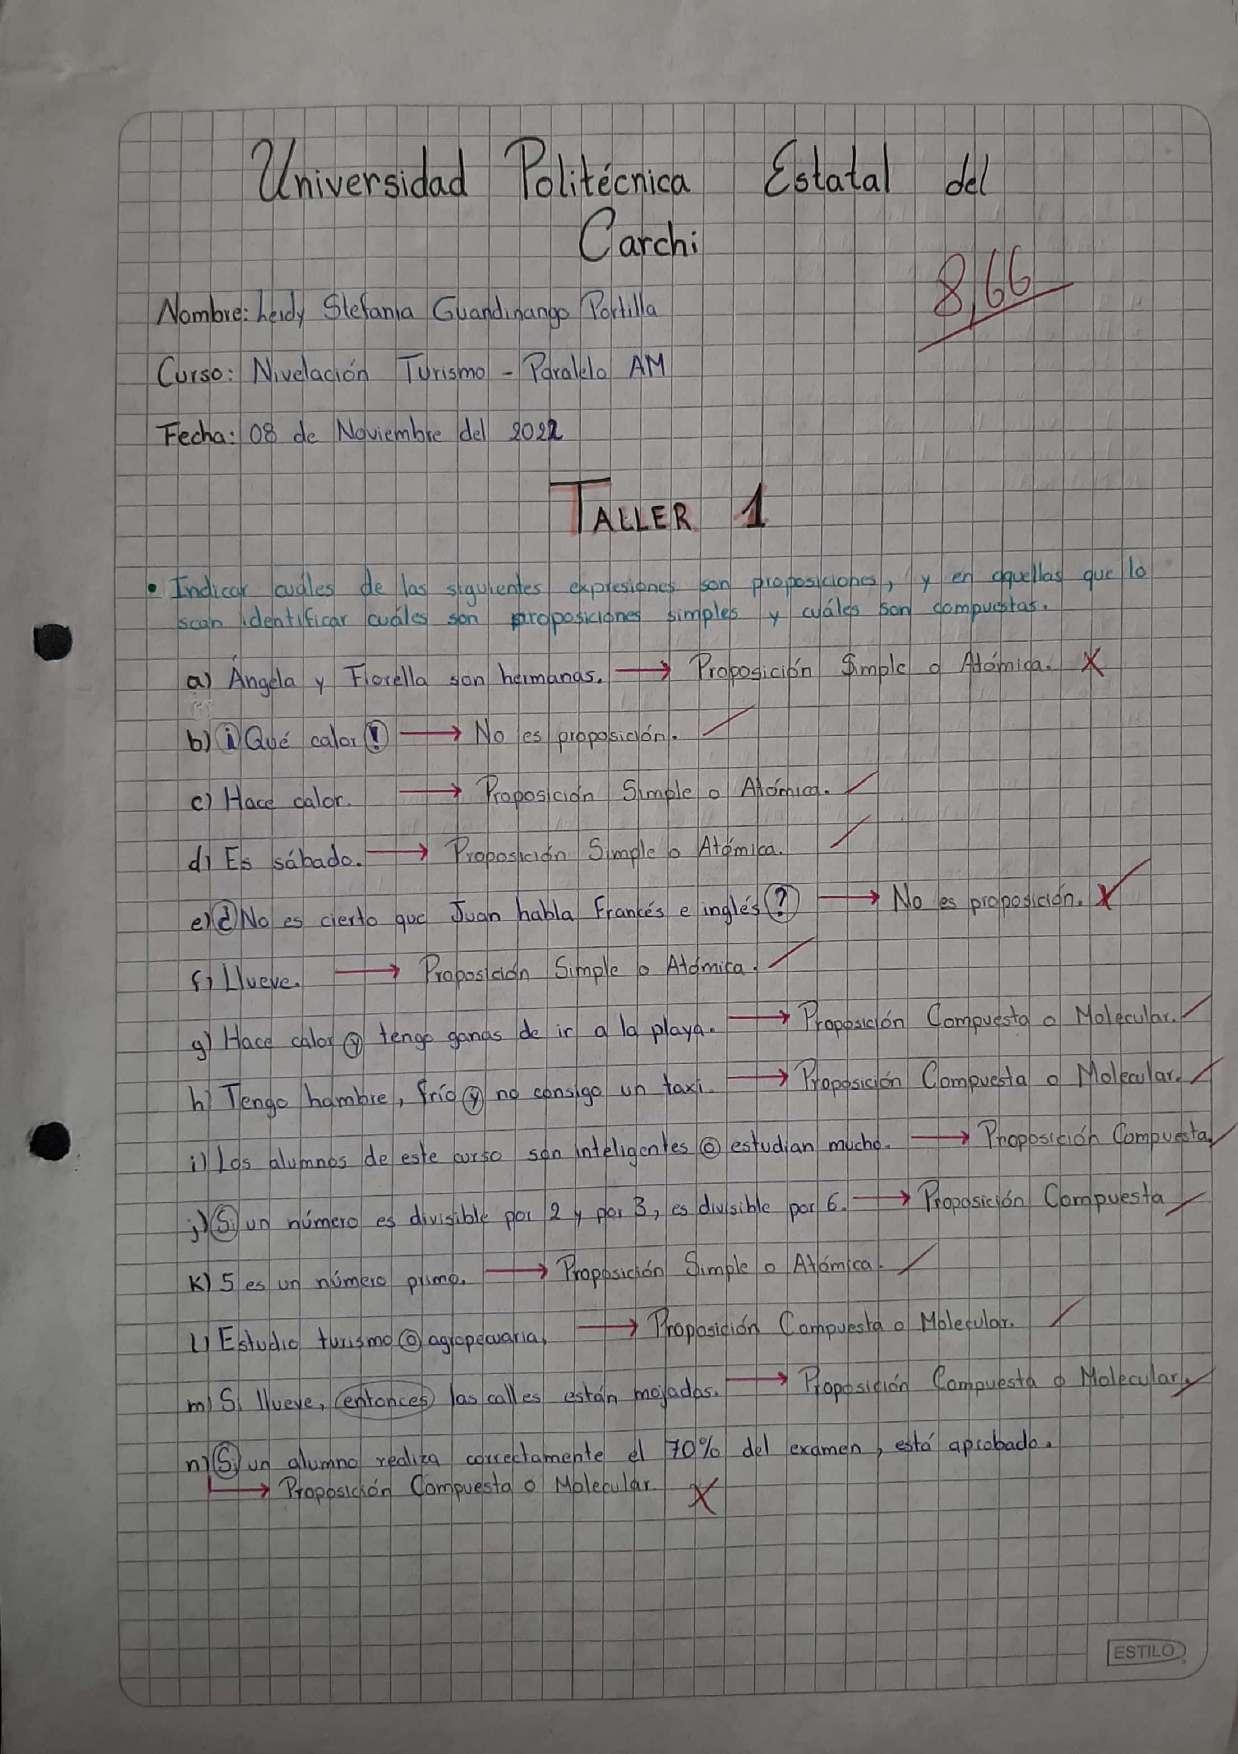 Universidad Politécnica Estatal del
Carchi
8,66
Nombre: Leidy Stefania Guandinango Portilla
Curso: Nivelación Turismo - Paralelo AM
Fecha: 08 de Noviembre del 2022
TALLER 1
• Indicar cuáles de las siguientes expresiones son proposiciones, y en aquellas que lo
sean identificar cuáles son proposiciones simples y cuáles son compuestas.
a) Ángela y Fiorella son hermanas. → Proposición Simple o Atómica. X
b) ¡Qué calor! → No es proposición. ✓
c) Hace calor. → Proposición Simple o Atómica. ✓
d) Es sábado. → Proposición Simple o Atómica. ✓
e) ¿No es cierto que Juan habla Francés e inglés? → No es proposición. X
f) Llueve. → Proposición Simple o Atómica. ✓
g) Hace calor y tengo ganas de ir a la playa. → Proposición Compuesta o Molecular. ✓
h) Tengo hambre, frío y no consigo un taxi. → Proposición Compuesta o Molecular. ✓
i) Los alumnos de este curso son inteligentes o estudian mucho. → Proposición Compuesta ✓
j) Si un número es divisible por 2 y por 3, es divisible por 6. → Proposición Compuesta ✓
K) 5 es un número primo. → Proposición Simple o Atómica. ✓
l) Estudio turismo o agropecuaria, → Proposición Compuesta o Molecular. ✓
m) Si llueve, entonces las calles están mojadas. → Proposición Compuesta o Molecular. ✓
n) Si un alumno realiza correctamente el 70% del examen, está aprobado.
→ Proposición Compuesta o Molecular. X
ESTILO